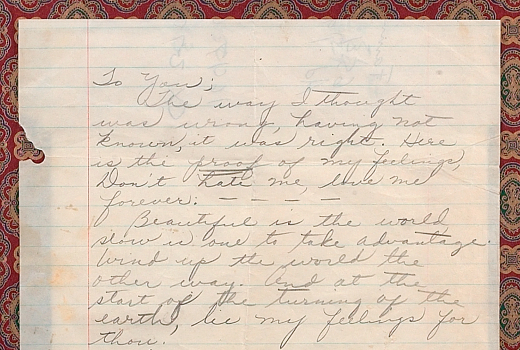 To You;
The way I thought
was wrong, having not
known, it was right. Here
is the proof of my feelings,
Don't hate me, love me
forever. — — — —
Beautiful is the world
slow is one to take advantage.
Wind up the world the
other way. And at the
start of the turning of the
earth, lie my feelings for
thou.